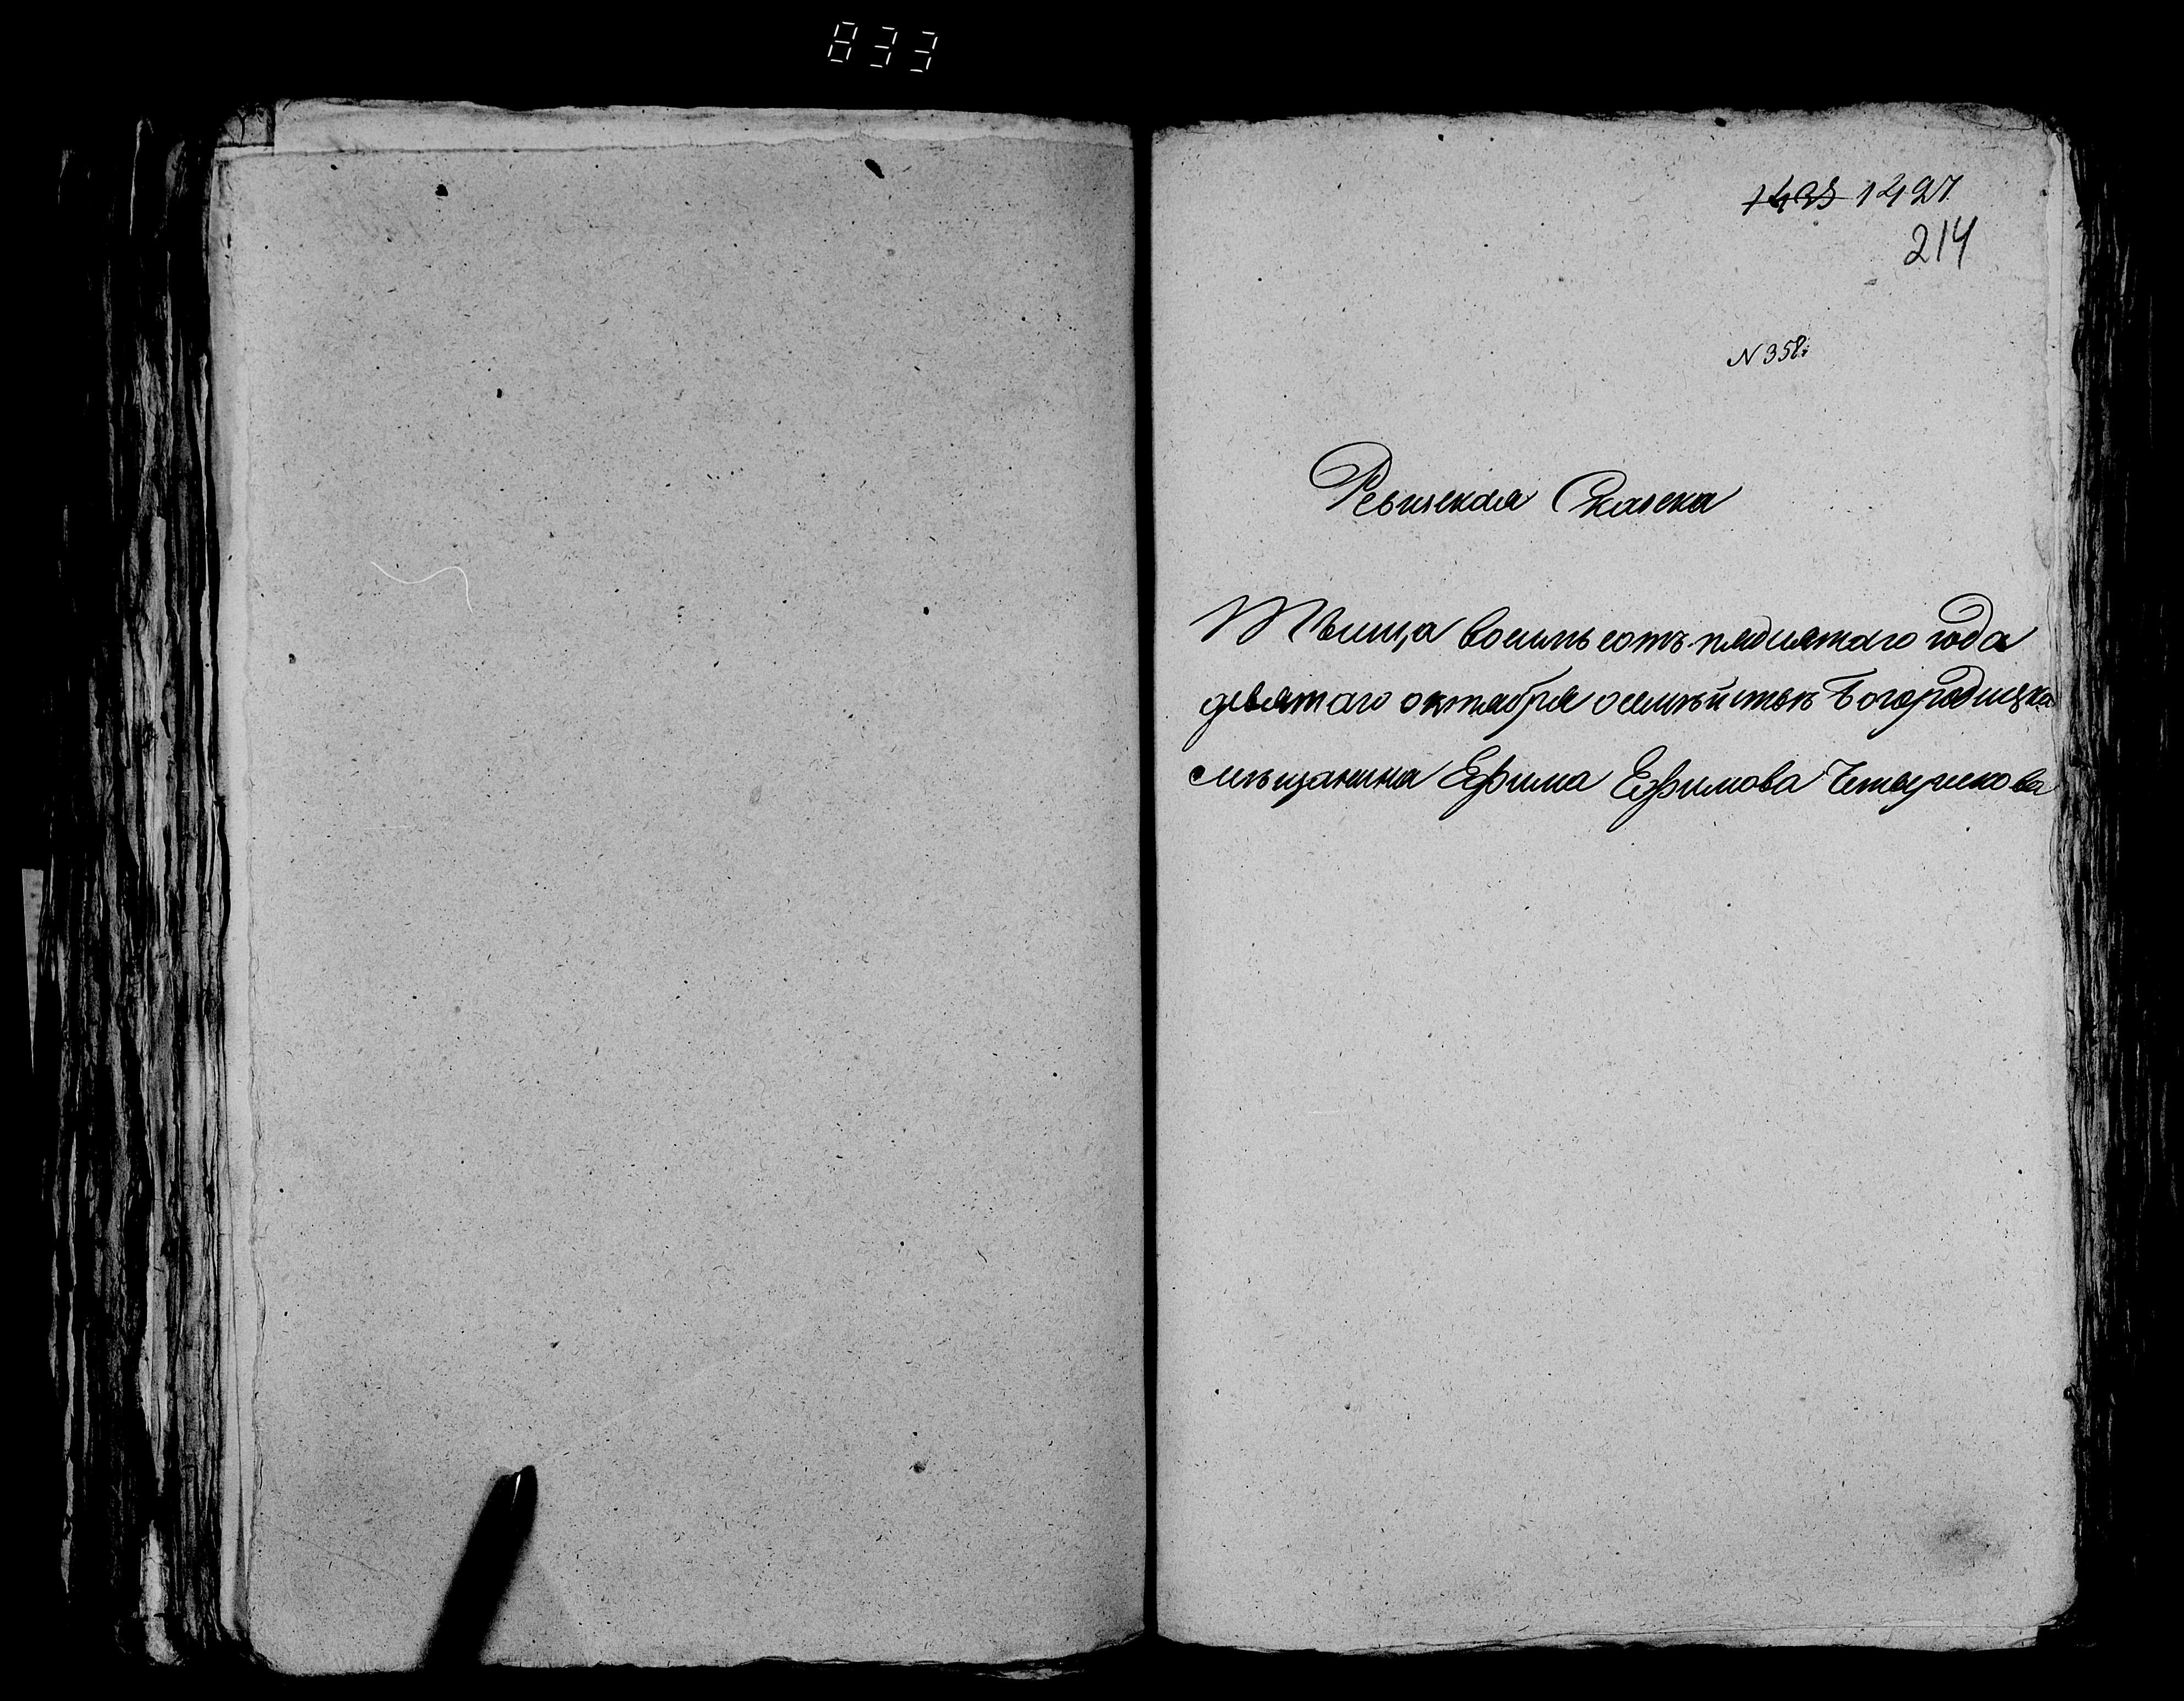 833
1438 1427
214
N 358й
Ревизская Сказка
Тысяща восемь сотъ пядисятаго года
девятаго октября о семъйствъ Богородицка
мѣщанина Ефима Ефимова